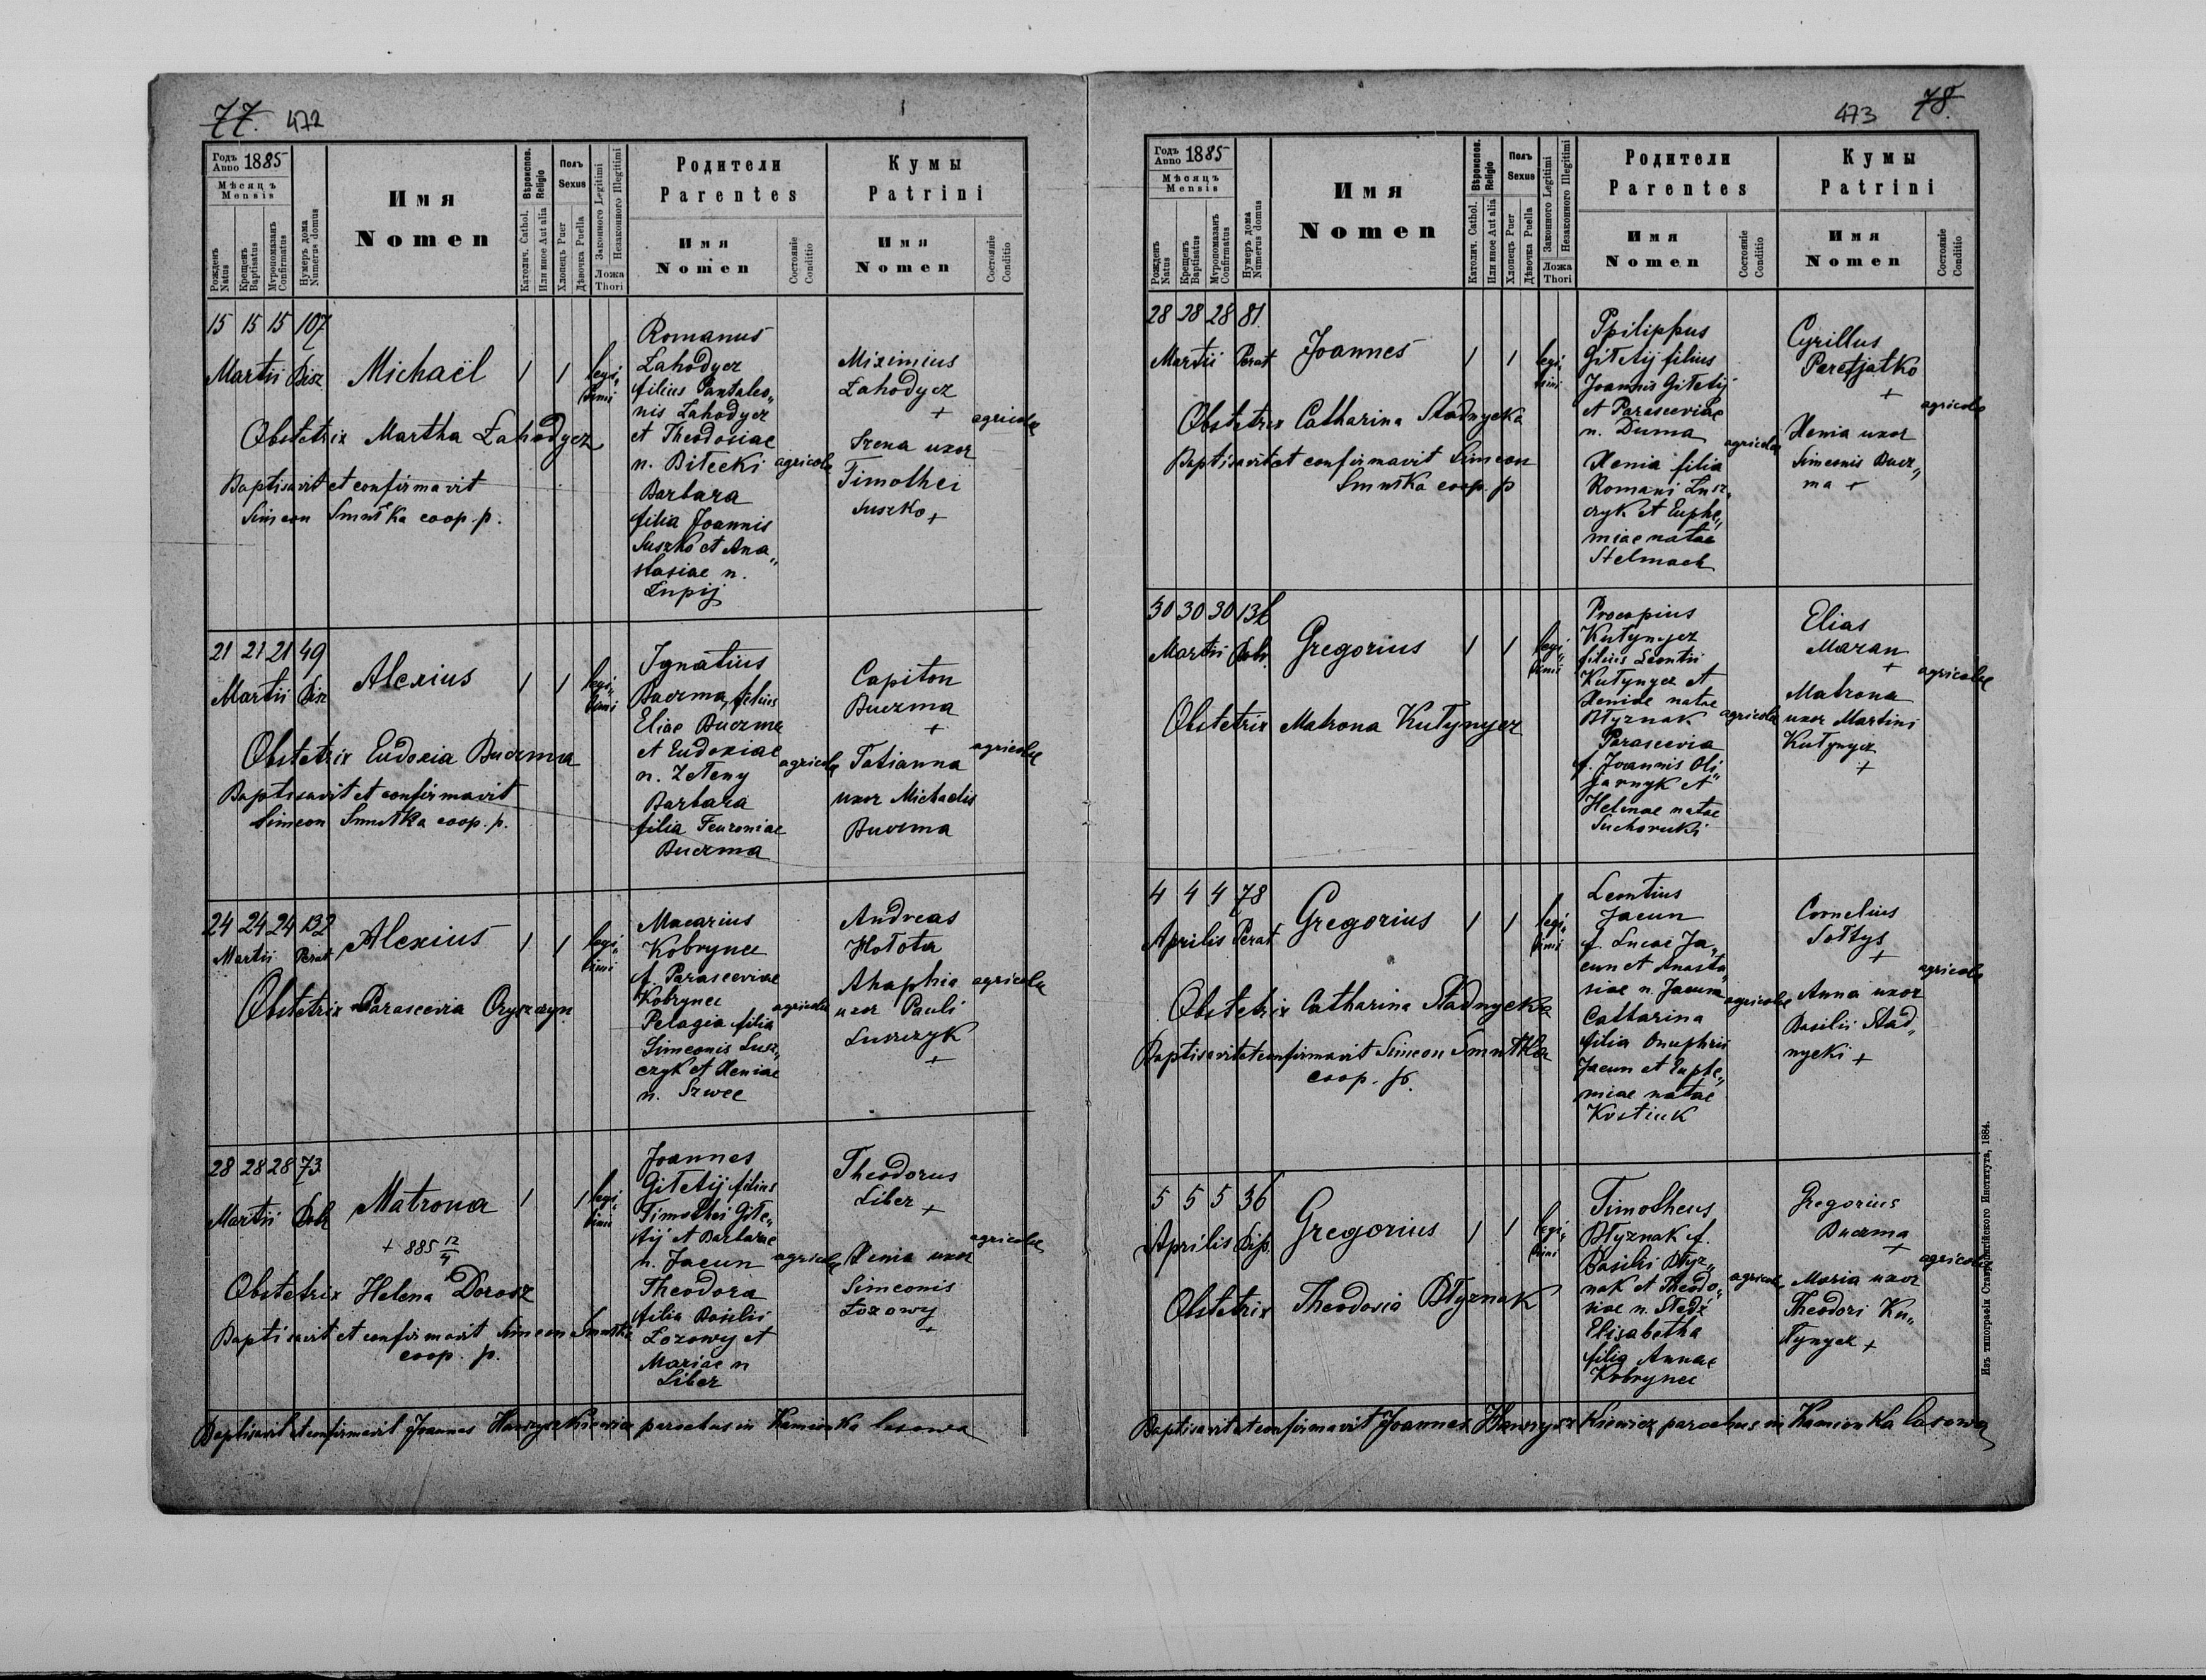 77. 472
Годъ Anno 1885
Мѣсяцъ Mensis
Рожденъ Natus
Крещенъ Baptisatus
Мѵропомазанъ Confirmatus
Нумеръ дома Numerus domus
Имя
Nomen
Вѣроиспов. Religio
Католич. Cathol.
Или иное Aut alia
Полъ Sexus
Хлопецъ Puer
Дѣвочка Puella
Законного Legitimi
Незаконного Illegitimi
Ложа Thori
Родители
Parentes
Имя
Nomen
Состояніе Conditio
Кумы
Patrini
Имя
Nomen
Состояніе Conditio
15 15 15 107
Martii Bisz
Michaël
1 1
legi„
timi
Obstetrix Martha Zahodycz
Baptisavit et confirmavit
Simeon Smułka coop. p.
Romanus
Zahodycz
filius Pantaleo„
nis Zahodycz
et Theodosiae
n. Biłecki
Barbara
filia Joannis
Suszko et Ana„
stasiae n.
Łupij
agricola
Miximius
Zahodycz
+
Irena uxor
Timothei
Suszko +
agricolae
21 21 21 49
Martii Bisz
Alexius
1 1
legi„
timi
Obstetrix Eudoxia Buczma
Baptisavit et confirmavit
Simeon Smułka coop. p.
Ignatius
Buczma, filius
Eliae Buczma
et Eudoxiae
n. Zełeny
Barbara
filia Feuroniae
Buczma
agricola
Capiton
Buczma
+
Tatianna
uxor Michaelis
Buczma
agricolae
24 24 24 132
Martii Perat
Alexius
1 1
legi„
timi
Obstetrix Parascevia Oryszczyn
Macarius
Kobrynec
f. Parasceviae
Kobrynec
Pelagia filia
Simeonis Łusz„
czyk et Xeniae
n. Szwec
agricola
Andreas
Hołota
Ahaphia
uxor Pauli
Łuszczyk
+
agricolae
28 28 28 73
Martii Dub
Matrona
+ 885 12/4
1 1
legi„
timi
Obstetrix Helena Dorosz
Baptisavit et confirmavit Simeon Smułka
coop. p.
Joannes
Gitełij filius
Timothei Gite„
łij et Barbarae
n. Jacun
Theodora
filia Basilii
Łozowy et
Mariae n
Liber
agricola
Theodorus
Liber +
Xenia uxor
Simeonis
Łozowy
+
agricolae
Baptisavit et confirmavit Joannes Hawryszkiewicz parochus in Kamionka lasowa
473 78.
Годъ Anno 1885
Мѣсяцъ Mensis
Рожденъ Natus
Крещенъ Baptisatus
Мѵропомазанъ Confirmatus
Нумеръ дома Numerus domus
Имя
Nomen
Вѣроиспов. Religio
Католич. Cathol.
Или иное Aut alia
Полъ Sexus
Хлопецъ Puer
Дѣвочка Puella
Законного Legitimi
Незаконного Illegitimi
Ложа Thori
Родители
Parentes
Имя
Nomen
Состояніе Conditio
Кумы
Patrini
Имя
Nomen
Состояніе Conditio
28 28 28 81.
Martii Perat
Joannes
1 1
legi„
timi
Obstetrix Catharina Stadnycka
Baptisavit et confirmavit Simeon
Smułka coop. p
Philippus
Gitełij filius
Joannis Gitełij
et Parasceviae
n. Duma
Xenia filia
Romani Łusz„
czyk et Euphe„
miae natae
Stelmach
agricola
Cyrillus
Peretjatko
+
Xenia uxor
Simeonis Bucz„
ma +
agricolae
30 30 30 132
Martii Dub
Gregorius
1 1
legi„
timi
Obstetrix Matrona Kutynycz
Procopius
Kutynycz
filius Leontii
Kutynycz et
Xeniae natae
Błyznak
Parascevia
f. Joannis Oli„
jarnyk et
Helenae natae
Suchorukі
agricola
Elias
Mazan
+
Matrona
uxor Martini
Kutynycz
+
agricolae
4 4 4 78
Aprilis Perat
Gregorius
1 1
legi„
timi
Obstetrix Catharina Stadnycka
Baptisavit et confirmavit Simeon Smułka
coop. p.
Leontius
Jacun
f. Lucae Ja„
cun et Anasta„
siae n. Jacun
Catharina
filia Onuphrii
Jacun et Euphe„
miae natae
Kostiuk
agricolae
Cornelius
Sołtys
+
Anna uxor
Basilii Stad„
nycki +
agricolae
5 5 5 36
Aprilis Bisz.
Gregorius
1 1
legi„
timi
Obstetrix Theodosia Błyznak
Timotheus
Błyznak f.
Basilii Błyz„
nak et Theodo„
siae n. Stedź
Elisabetha
filia Annae
Kobrynec
agricola
Gregorius
Buczma
+
Maria uxor
Theodori Ku„
tynycz +
agricolae
Baptisavit et confirmavit Joannes Hawryszkiewicz parochus in Kamionka lasowa
Изъ типографіи Ставропигійского Института, 1884.